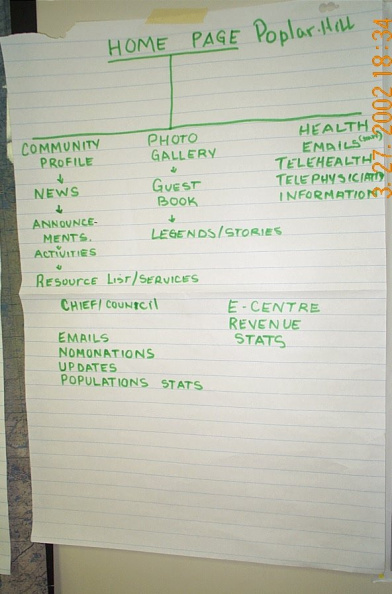 HOME PAGE Poplar Hill
COMMUNITY
PROFILE
NEWS
ANNOUNCE-
MENTS.
ACTIVITIES
RESOURCE LIST/SERVICES
PHOTO
GALLERY
GUEST
BOOK
LEGENDS/STORIES
HEALTH
EMAILS
TELEHEALTH
TELEPHYSICIAN
INFORMATION
CHIEF/COUNCIL
EMAILS
NOMONATIONS
UPDATES
POPULATIONS STATS
E-CENTRE
REVENUE
STATS
3-27-2002 18:34